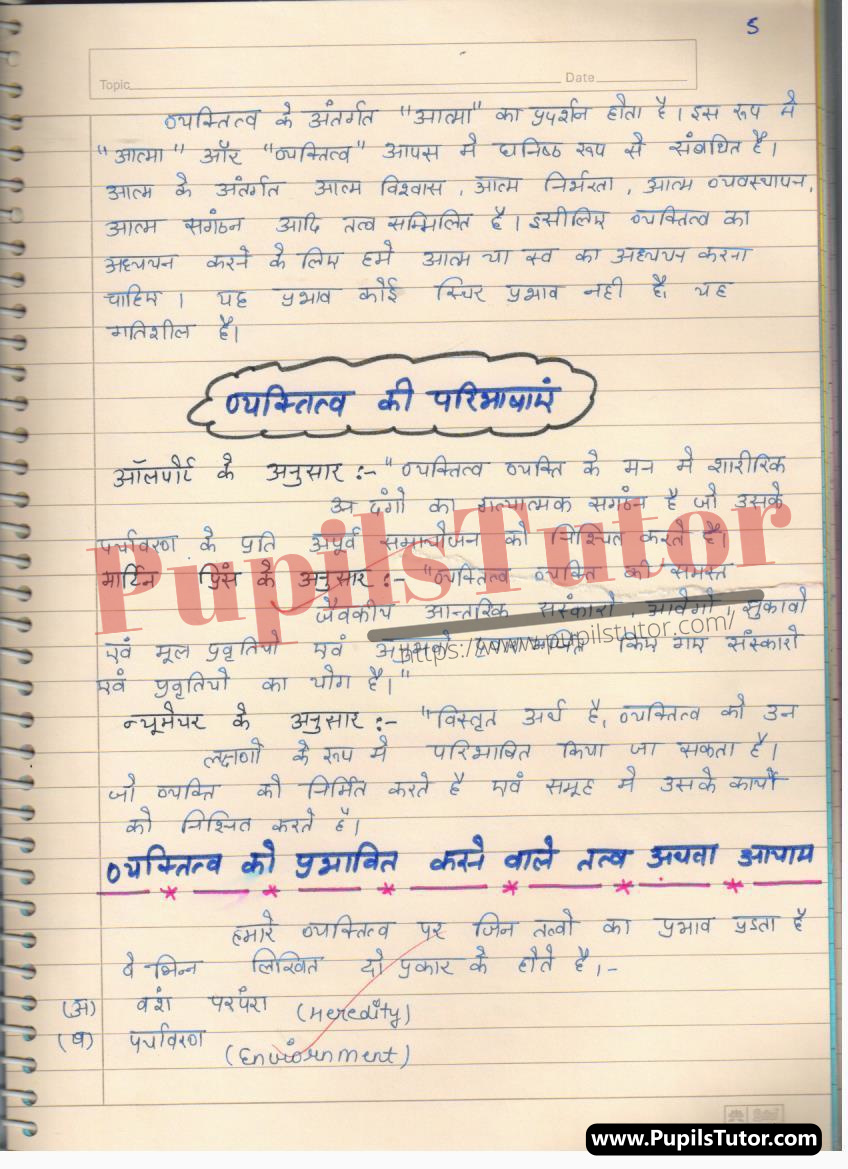 5
Topic
Date
व्यक्तित्व के अंतर्गत "आत्मा" का प्रदर्शन होता है। इस रूप मे
"आत्मा" और "व्यक्तित्व" आपस मे घनिष्ठ रूप से संबधित है।
आत्म के अंतर्गत आत्म विश्वास, आत्म निर्भरता, आत्म व्यवस्थापन,
आत्म सगंठन आदि तत्व सम्मिलित है। इसीलिए व्यक्तित्व का
अध्ययन करने के लिए हमे आत्म या स्व का अध्ययन करना
चाहिए। यह प्रभाव कोई स्थिर प्रभाव नही है, यह
गतिशील है।
व्यक्तित्व की परिभाषाएं
ऑलपोर्ट के अनुसार :- "व्यक्तित्व व्यक्ति के मन मे शारीरिक
का गत्यात्मक सगंठन है जो उसके
पर्यावरण के प्रति अपूर्व समायोजन को निश्चित करते है।
मार्टिन प्रिंस के अनुसार :- "व्यक्तित्व व्यक्ति की समस्त
जैवकीय आन्तरिक संस्कारो, आवेगो, झुकावो
एवं मूल प्रवृतियो एवं किए गए संस्कारो
एवं प्रवृतियो का योग है।"
न्यूमेयर के अनुसार :- "विस्तृत अर्थ है, व्यक्तित्व को उन
लक्षणों के रूप मे परिभाषित किया जा सकता है।
जो व्यक्ति को निर्मित करते है एवं समूह मे उसके कार्यो
को निश्चित करते है।
व्यक्तित्व को प्रभावित करने वाले तत्व अथवा आयाम
हमारे व्यक्तित्व पर जिन तत्वो का प्रभाव पड़ता है
वे भिन्न लिखित दो प्रकार के होते है।-
(अ) वंश परपंरा (Heredity)
(ब) पर्यावरण
PupilsTutor
https://www.pupilstutor.com/
www.PupilsTutor.com